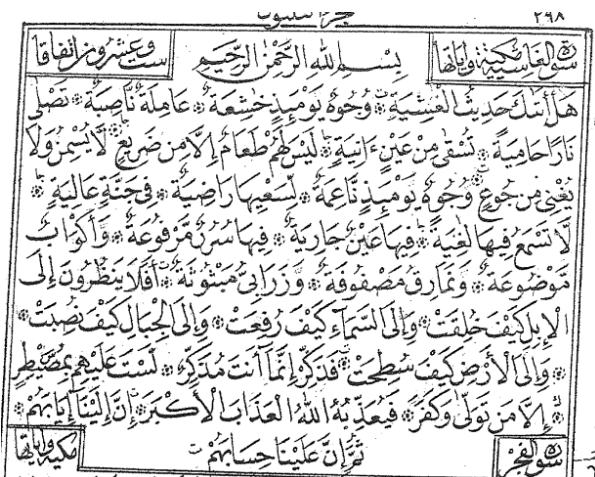 ٢٩٨
سورة الغاشية مكية وآياتها
بِسْمِ اللهِ الرَّحْمٰنِ الرَّحِيمِ
ست وعشرون اتفاقا
هَلْ أَتَىٰكَ حَدِيثُ الْغَٰشِيَةِ ۞ وُجُوهٌ يَوْمَئِذٍ خَٰشِعَةٌ ۞ عَامِلَةٌ نَّاصِبَةٌ ۞ تَصْلَىٰ
نَارًا حَامِيَةً ۞ تُسْقَىٰ مِنْ عَيْنٍ ءَانِيَةٍ ۞ لَيْسَ لَهُمْ طَعَامٌ إِلَّا مِن ضَرِيعٍ ۞ لَا يُسْمِنُ وَلَا
يُغْنِي مِن جُوعٍ ۞ وُجُوهٌ يَوْمَئِذٍ نَّاعِمَةٌ ۞ لِسَعْيِهَا رَاضِيَةٌ ۞ فِي جَنَّةٍ عَالِيَةٍ ۞
لَا تَسْمَعُ فِيهَا لَٰغِيَةً ۞ فِيهَا عَيْنٌ جَارِيَةٌ ۞ فِيهَا سُرُرٌ مَّرْفُوعَةٌ ۞ وَأَكْوَابٌ
مَوْضُوعَةٌ ۞ وَنَمَارِقُ مَصْفُوفَةٌ ۞ وَزَرَابِيُّ مَبْثُوثَةٌ ۞ أَفَلَا يَنظُرُونَ إِلَى
الْإِبِلِ كَيْفَ خُلِقَتْ ۞ وَإِلَى السَّمَاءِ كَيْفَ رُفِعَتْ ۞ وَإِلَى الْجِبَالِ كَيْفَ نُصِبَتْ
۞ وَإِلَى الْأَرْضِ كَيْفَ سُطِحَتْ ۞ فَذَكِّرْ إِنَّمَا أَنتَ مُذَكِّرٌ ۞ لَسْتَ عَلَيْهِم بِمُصَيْطِرٍ
۞ إِلَّا مَن تَوَلَّىٰ وَكَفَرَ ۞ فَيُعَذِّبُهُ اللهُ الْعَذَابَ الْأَكْبَرَ ۞ إِنَّ إِلَيْنَا إِيَابَهُمْ ۞
ثُمَّ إِنَّ عَلَيْنَا حِسَابَهُمْ
سورة الفجر
مكية وآياتها